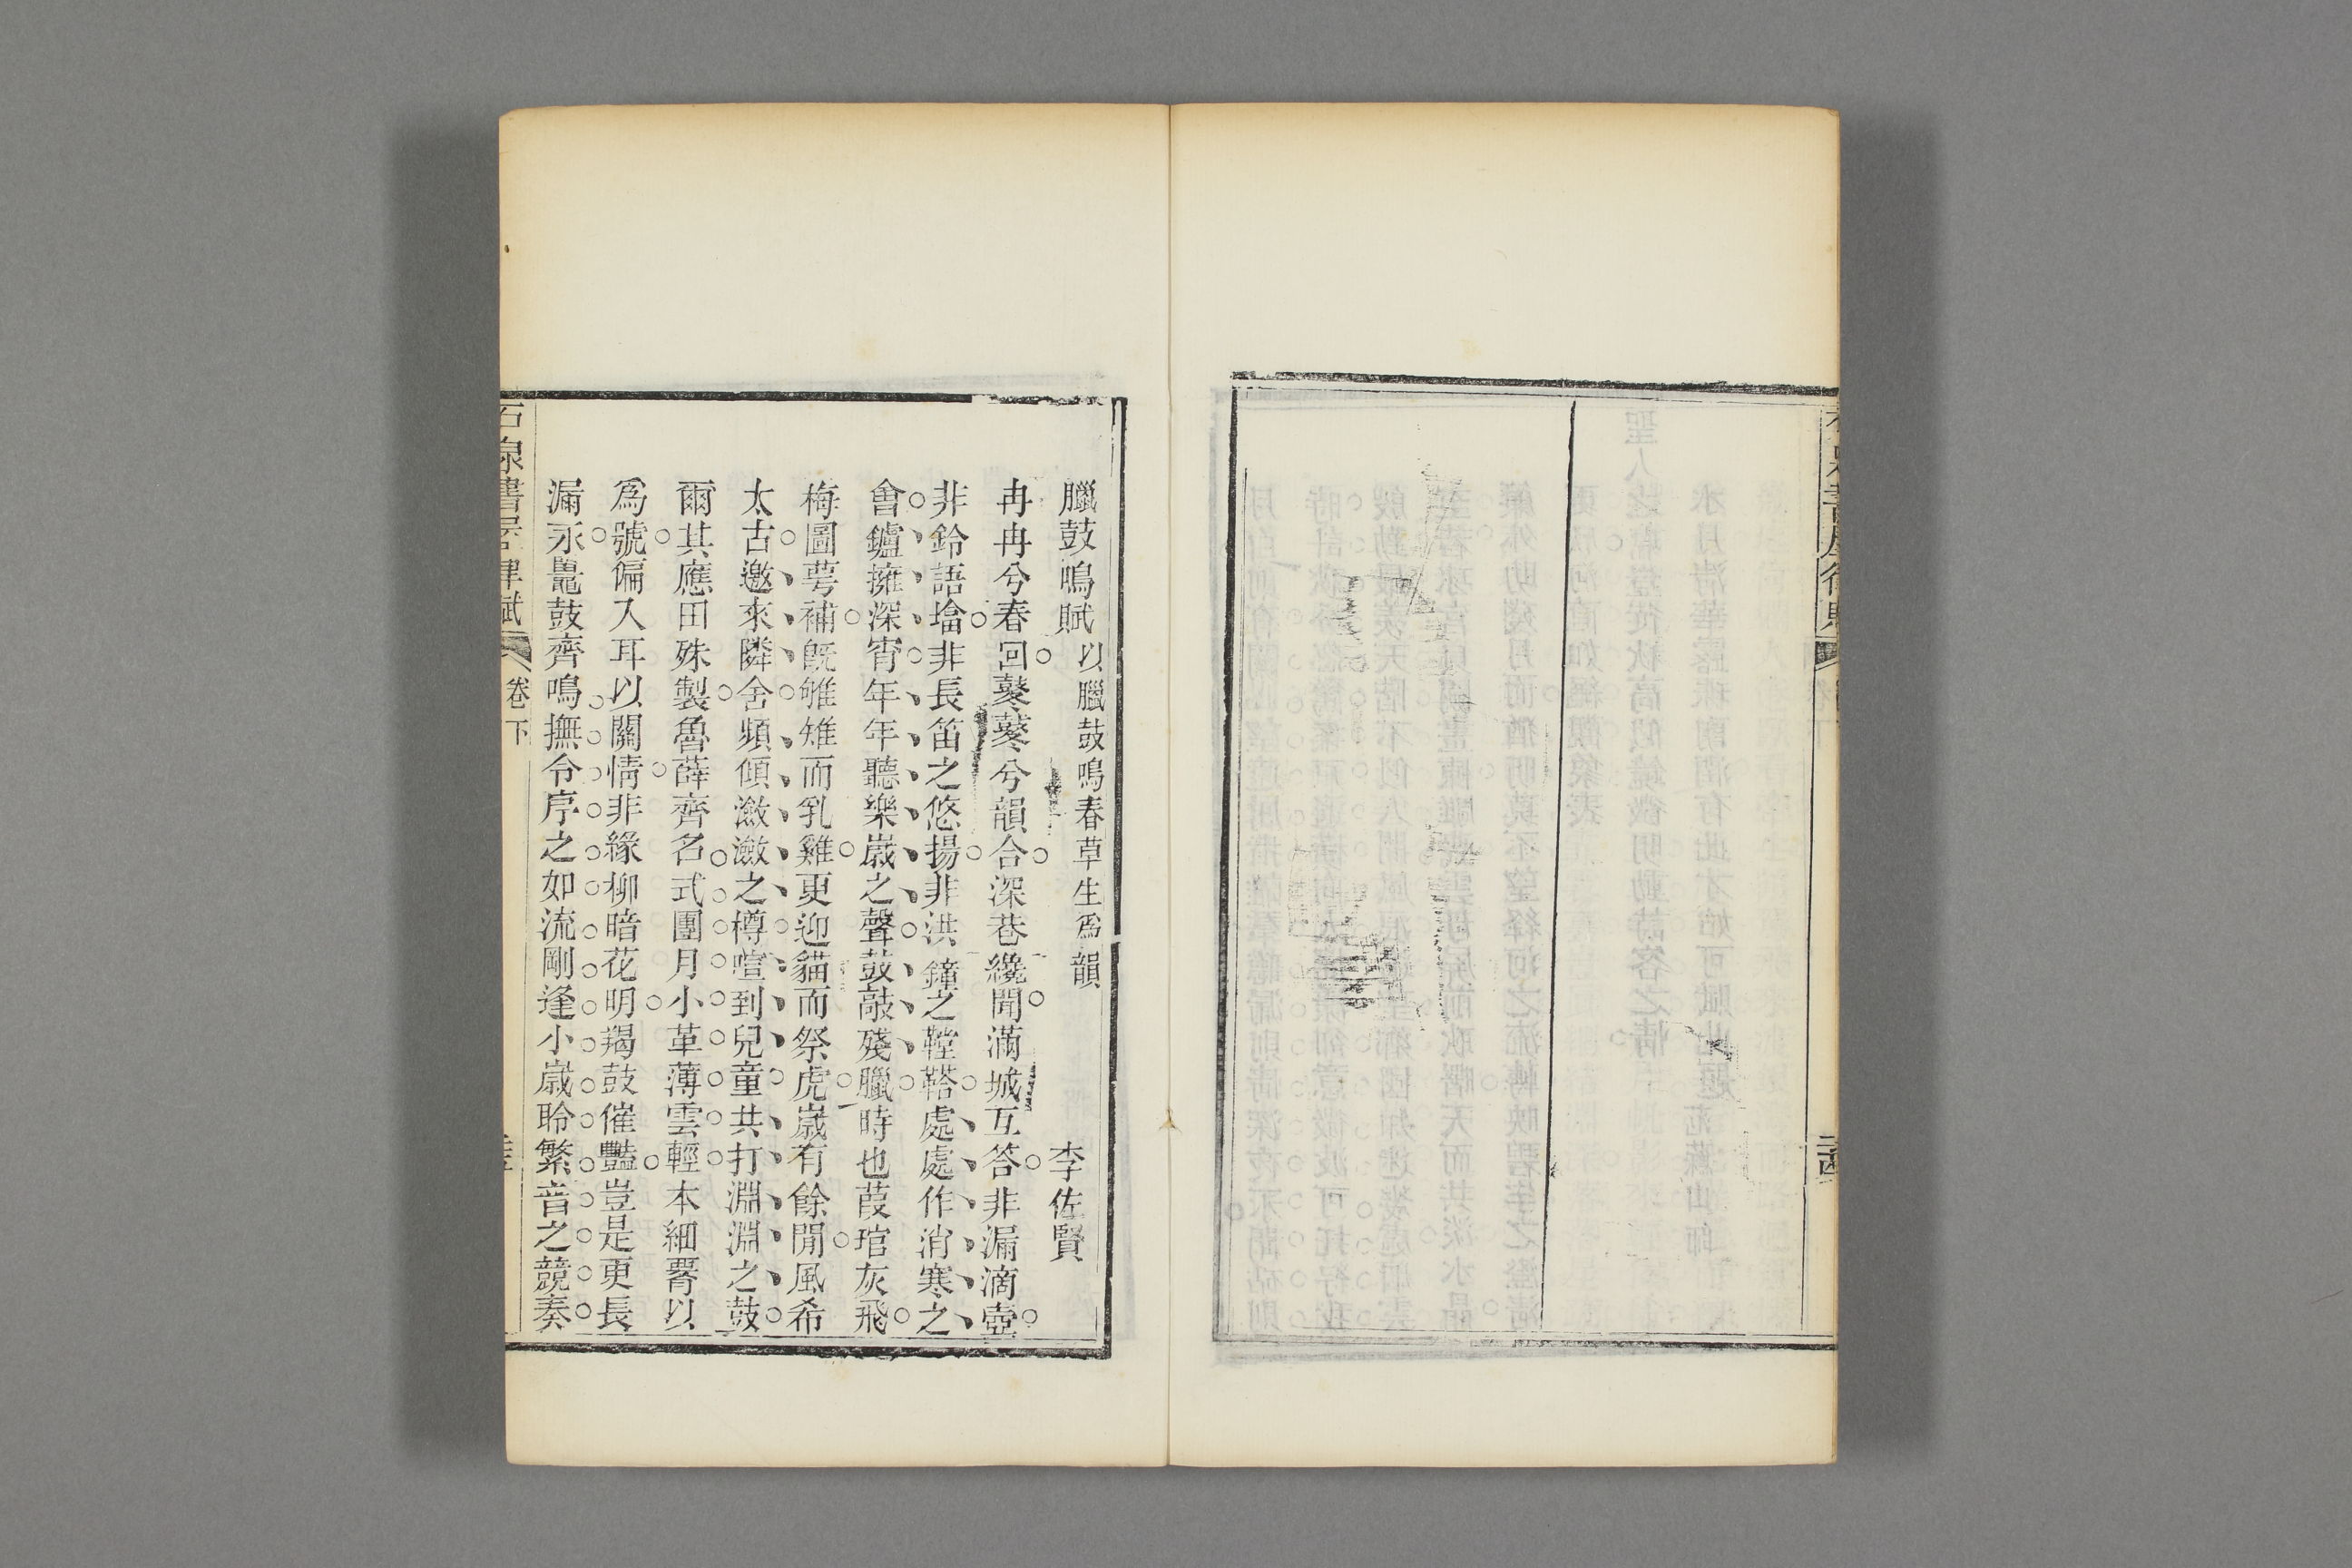 臘鼓鳴賦以臘鼓鳴春草生爲韻
李佐賢
冉冉兮春回鼕鼕兮韻合深巷纔聞滿城互答非漏滴壺
非鈴語墖非長笛之悠揚非洪鐘之鞺鞳處處作消寒之
會鑪擁深宵年年聽樂嵗之聲鼓敲殘臘時也葭琯灰飛
梅圖萼補旣雊雉而乳雞更迎貓而祭虎嵗有餘閒風希
太古邀來隣舍頻傾瀲瀲之樽喧到兒童共打淵淵之鼓
爾其應田殊製魯薛齊名式團月小革薄雲輕本細腰以
爲號偏入耳以關情非緣柳暗花明羯鼓催豔豈是更長
漏永鼉鼓齊鳴撫令序之如流剛逢小嵗聆繁音之競奏
石泉書屋律賦
卷下